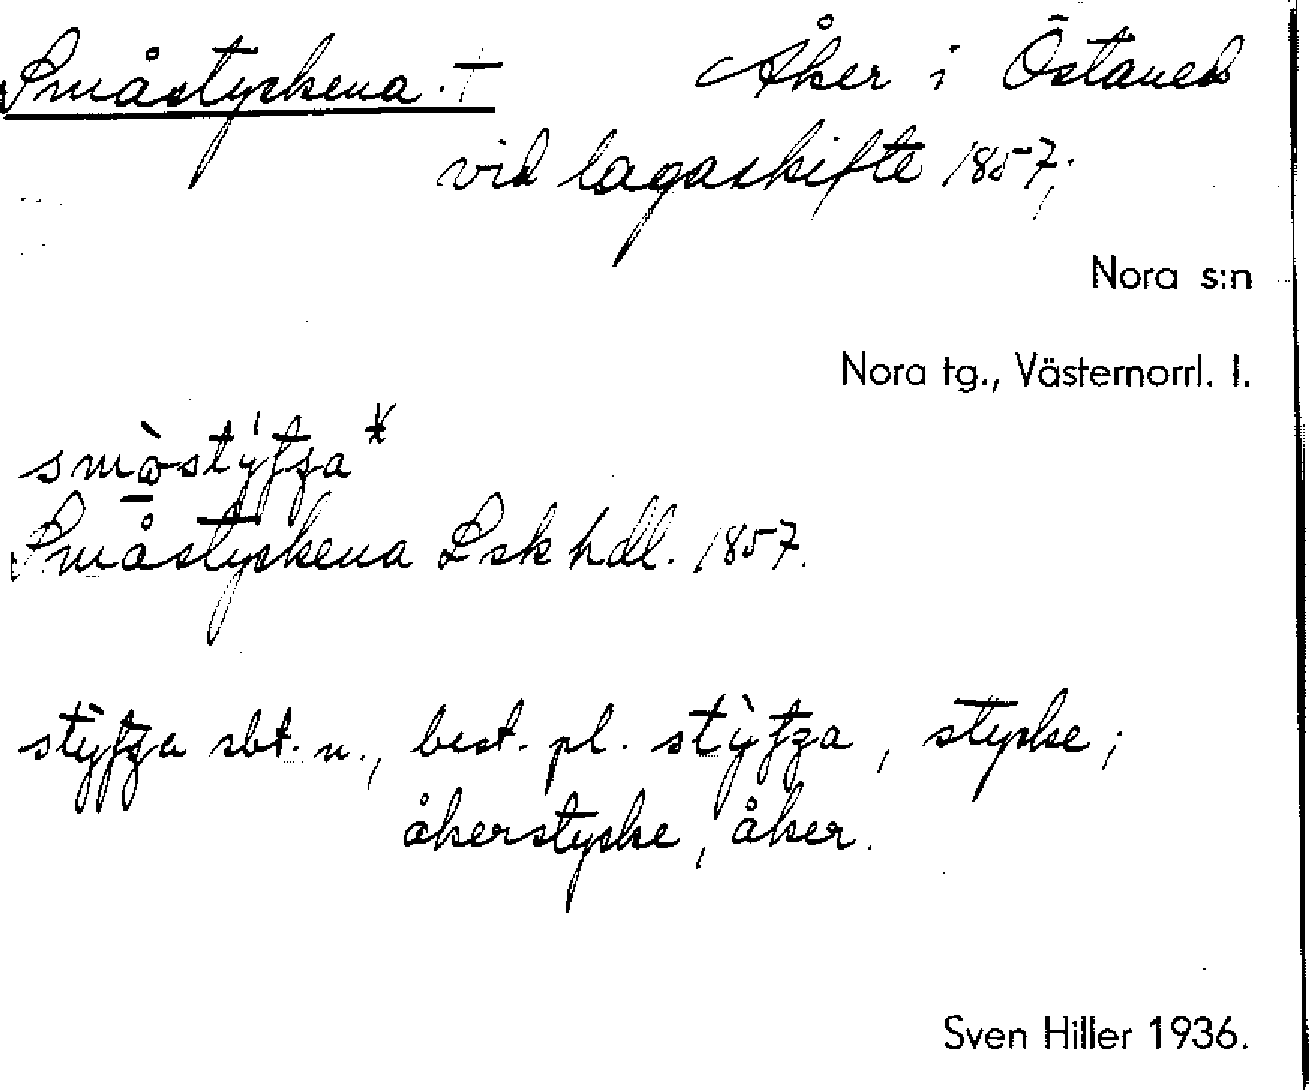 Småstyckena. † Åker i Östaned
vid lagaskifte 1857;
Nora s:n
Nora tg., Västernorrl. l.
Småstyckena Lsk hdl. 1857.
sbt. n., best. pl. , stycke;
åkerstycke, åker.
Sven Hiller 1936.